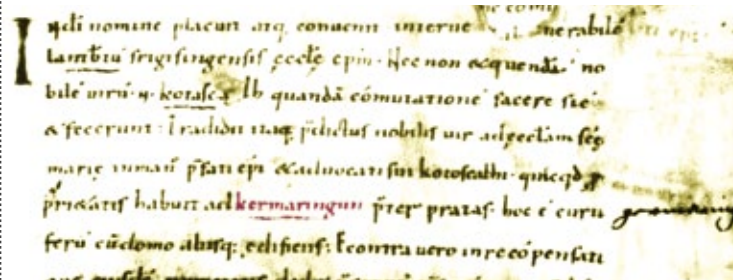 In dei nomine placuit atq; conuenit inter ue nerabilē
lantbtū frigisingensis ęccłe epm. Nec non &quendā no
bilē uirū. n. kotasca lh quandā cōmutationē facere sic
&fecerunt. Tradidit itaq; p̄dictus nobilis uir adęcclam scę
marię inmanū p̄fati epi &aduocati sui kotoscalhi. quicqd
p̄rietatis habuit ad kermaringun p̄ter pratas. hoc ē curtī
ferū cū domo aliisq; edificiis. Econtra uero in recōpensati